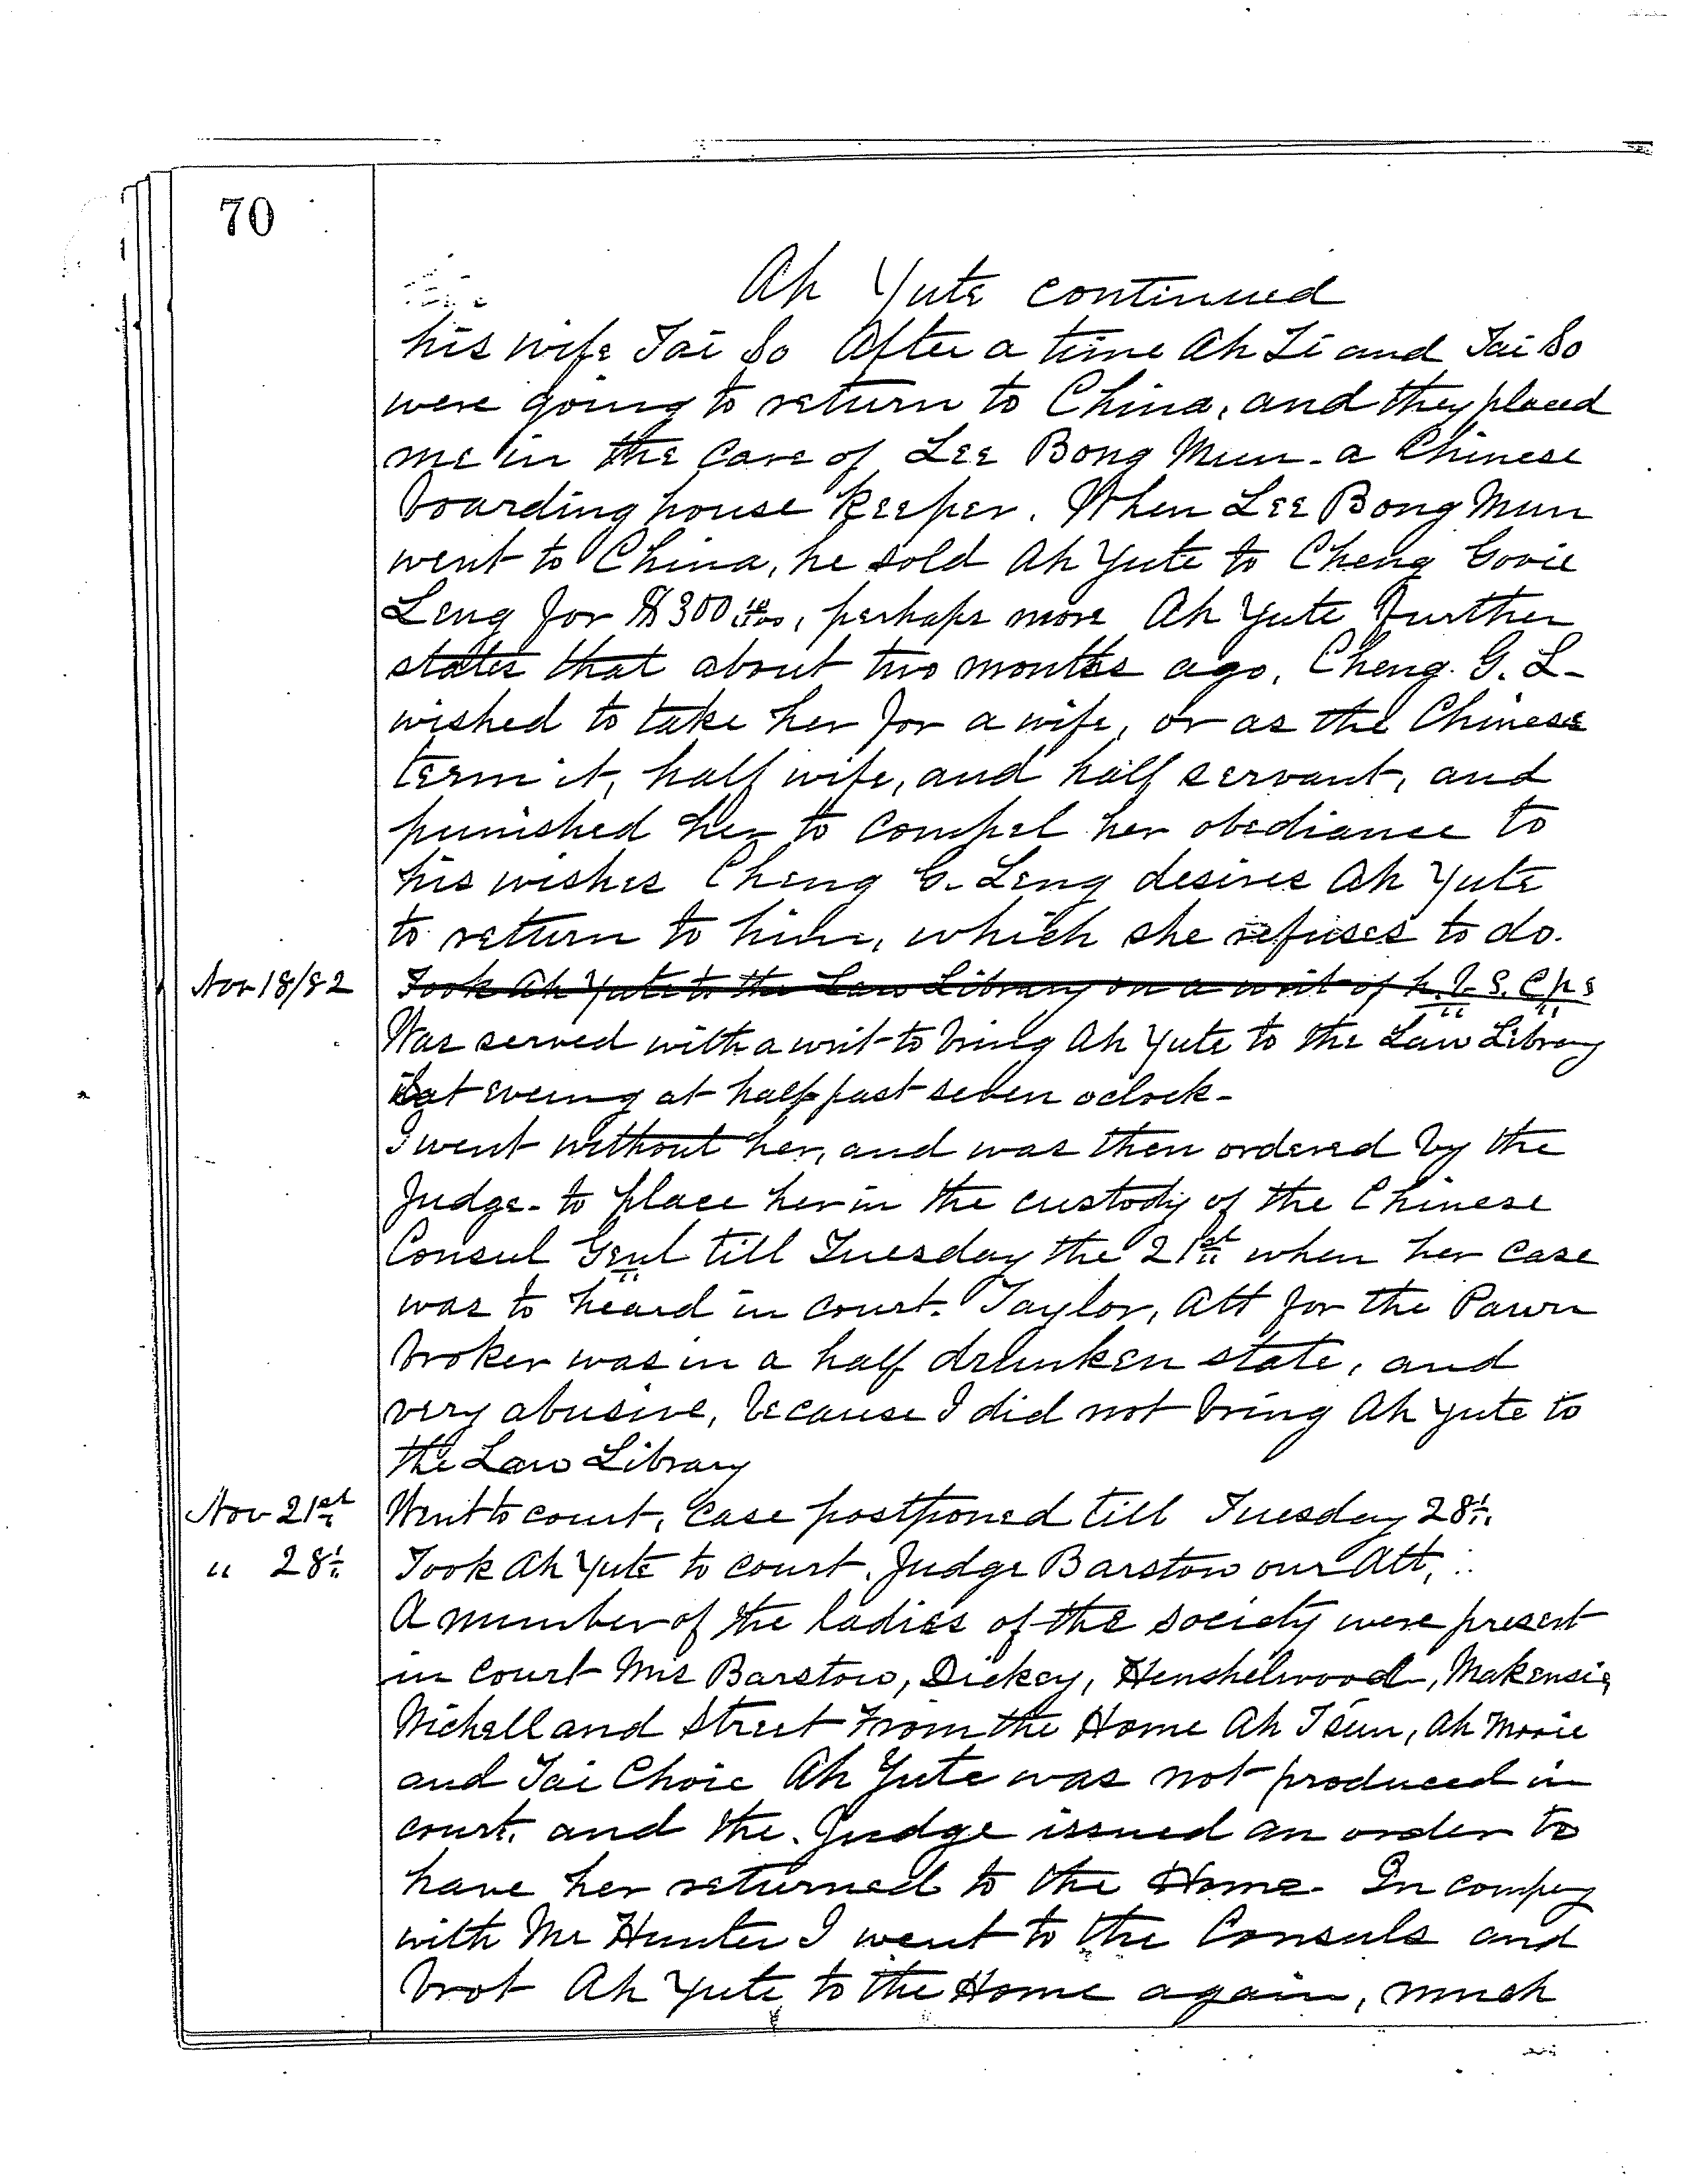 70
Ah Yute continued
his wife Tai So After a time Ah Ti and Tai So
were going to return to China, and they placed
me in the care of Lee Bong Mun - a Chinese
boarding house keeper. When Lee Bong Mun
went to China, he sold Ah Yute to Cheng Govie
Leng for $300, perhaps more Ah Yute further
states that about two months ago, Cheng. G. L-
wished to take her for a wife, or as the Chinese
term it, half wife, and half servant, and
punished her to compel her obediance to
his wishes Cheng G. Leng desires Ah Yute
to return to him, which she refuses to do.
Nov 18/82 Took Ah Yute to the Law Library on a writ of
Was served with a writ to bring Ah Yute to the Law Library
at evening at half past seven oclock -
I went without her, and was then ordered by the
Judge - to place her in the custody of the Chinese
Consul Genl till Tuesday the 21st when her case
was to heard in court. Taylor, Att for the Pawn
broker was in a half drunken state, and
very abusive, because I did not bring Ah Yute to
the Law Library
Nov 21st Went to court, case postponed till Tuesday 28t.
" 28t Took Ah Yute to court. Judge Barstow our Att,
A number of the ladies of the society were present
in court Mrs Barstow, Dickey, Henshelwood, Makensie,
Nichell and Street From the Home Ah Tsun, Ah Movie
and Tai Choie Ah Yute was not produced in
court, and the Judge issued an order to
have her returned to the Home - In compy
with Mr Hunter I went to the Consuls and
brot Ah Yute to the Home again, much